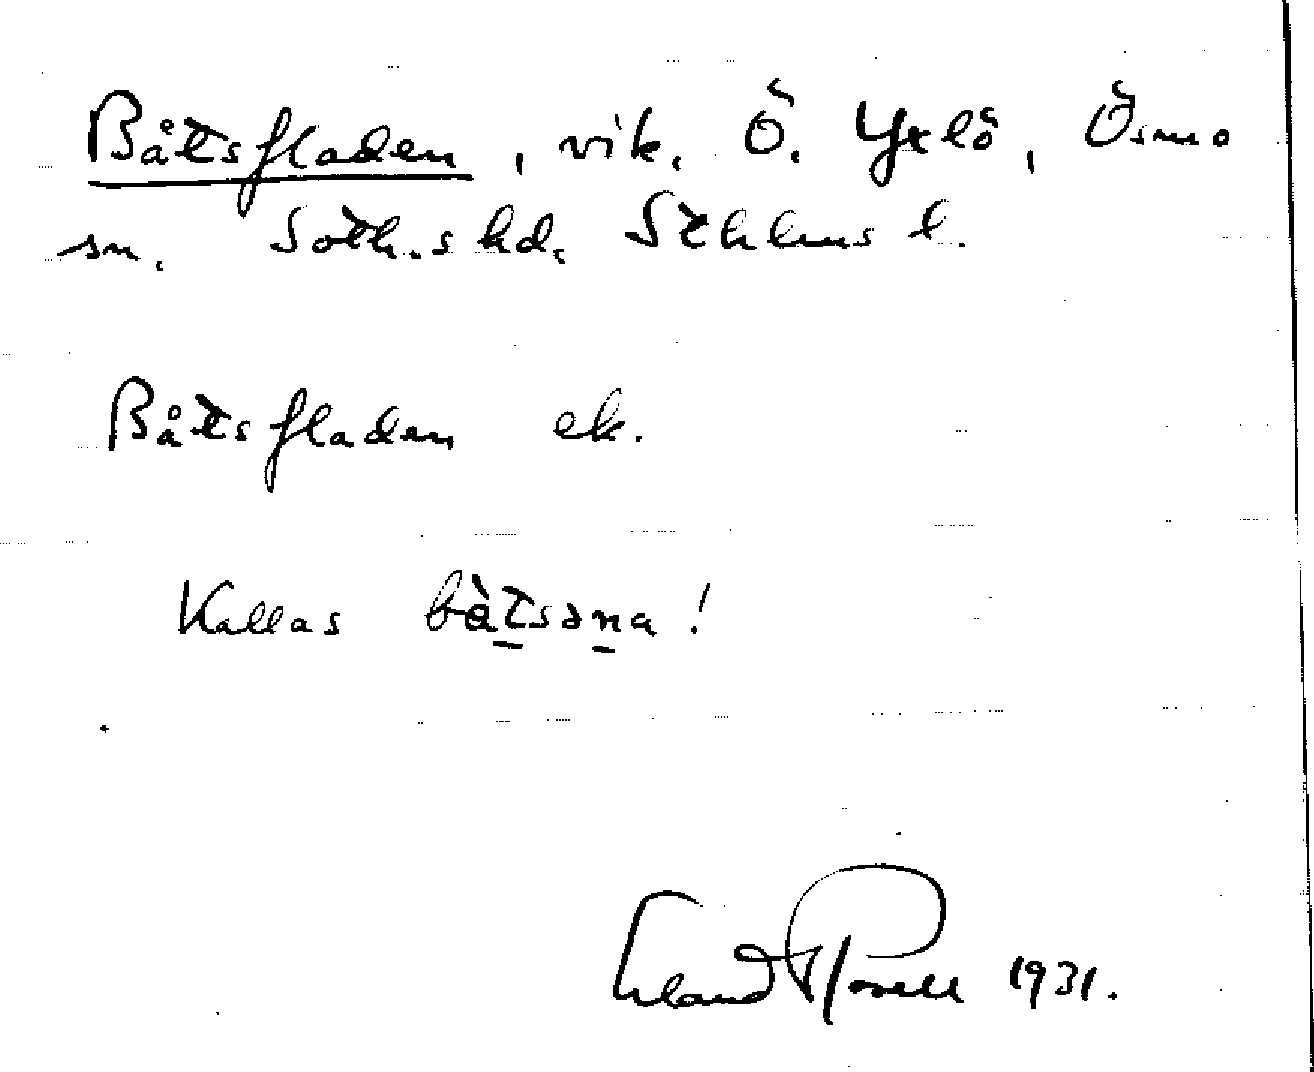 Båtsfladen, vik, Ö. Yxlö, Ösmo
sn, Soth.s hd, Sthlms l.
Båtsfladen ek.
Kallas bàtsəna!
Erland Rosell 1931.